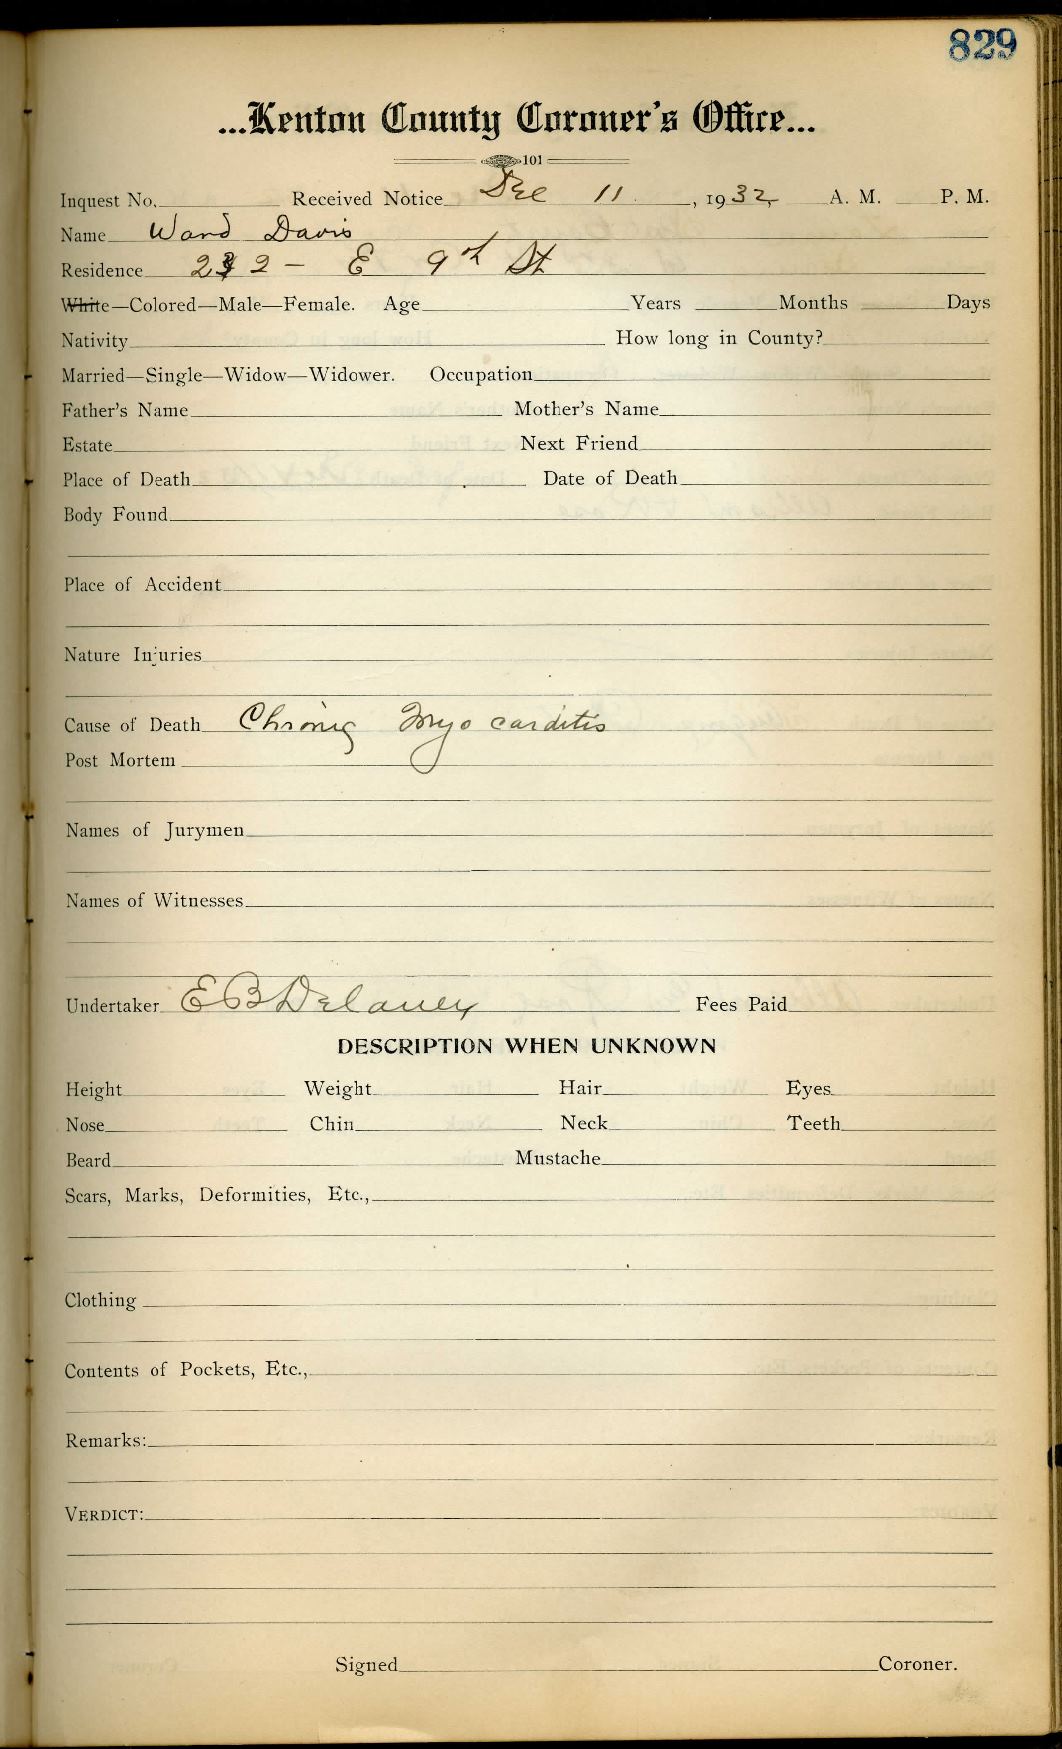 829
...Kenton County Coroner's Office...
101
Inquest No. Received Notice Dec 11, 1932 A. M. P. M.
Name Ward Davis
Residence 232 - E 9th St
White—Colored—Male—Female. Age Years Months Days
Nativity How long in County?
Married—Single—Widow—Widower. Occupation
Father's Name Mother's Name
Estate Next Friend
Place of Death Date of Death
Body Found
Place of Accident
Nature Injuries
Cause of Death Chronic Myocarditis
Post Mortem
Names of Jurymen
Names of Witnesses
Undertaker E B Delaney Fees Paid
DESCRIPTION WHEN UNKNOWN
Height Weight Hair Eyes
Nose Chin Neck Teeth
Beard Mustache
Scars, Marks, Deformities, Etc.,
Clothing
Contents of Pockets, Etc.,
Remarks:
VERDICT:
Signed Coroner.